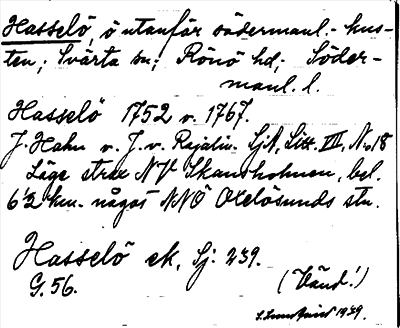 Hasselö, ö utanför södermanl.- kus-
ten; Svärta sn; Rönö hd; Söder-
manl. l.
Hasselö 1752 v. 1767.
J. Hahn v. J. v. Rajalin. SjA, Litt. III, No 18
Läge strax NV Skansholmen, bel.
6 1/2 km. något NNÖ Oxelösunds stn.
Hasselö ek. Sj. 239.
G. 56.
(Vänd!)
1939.